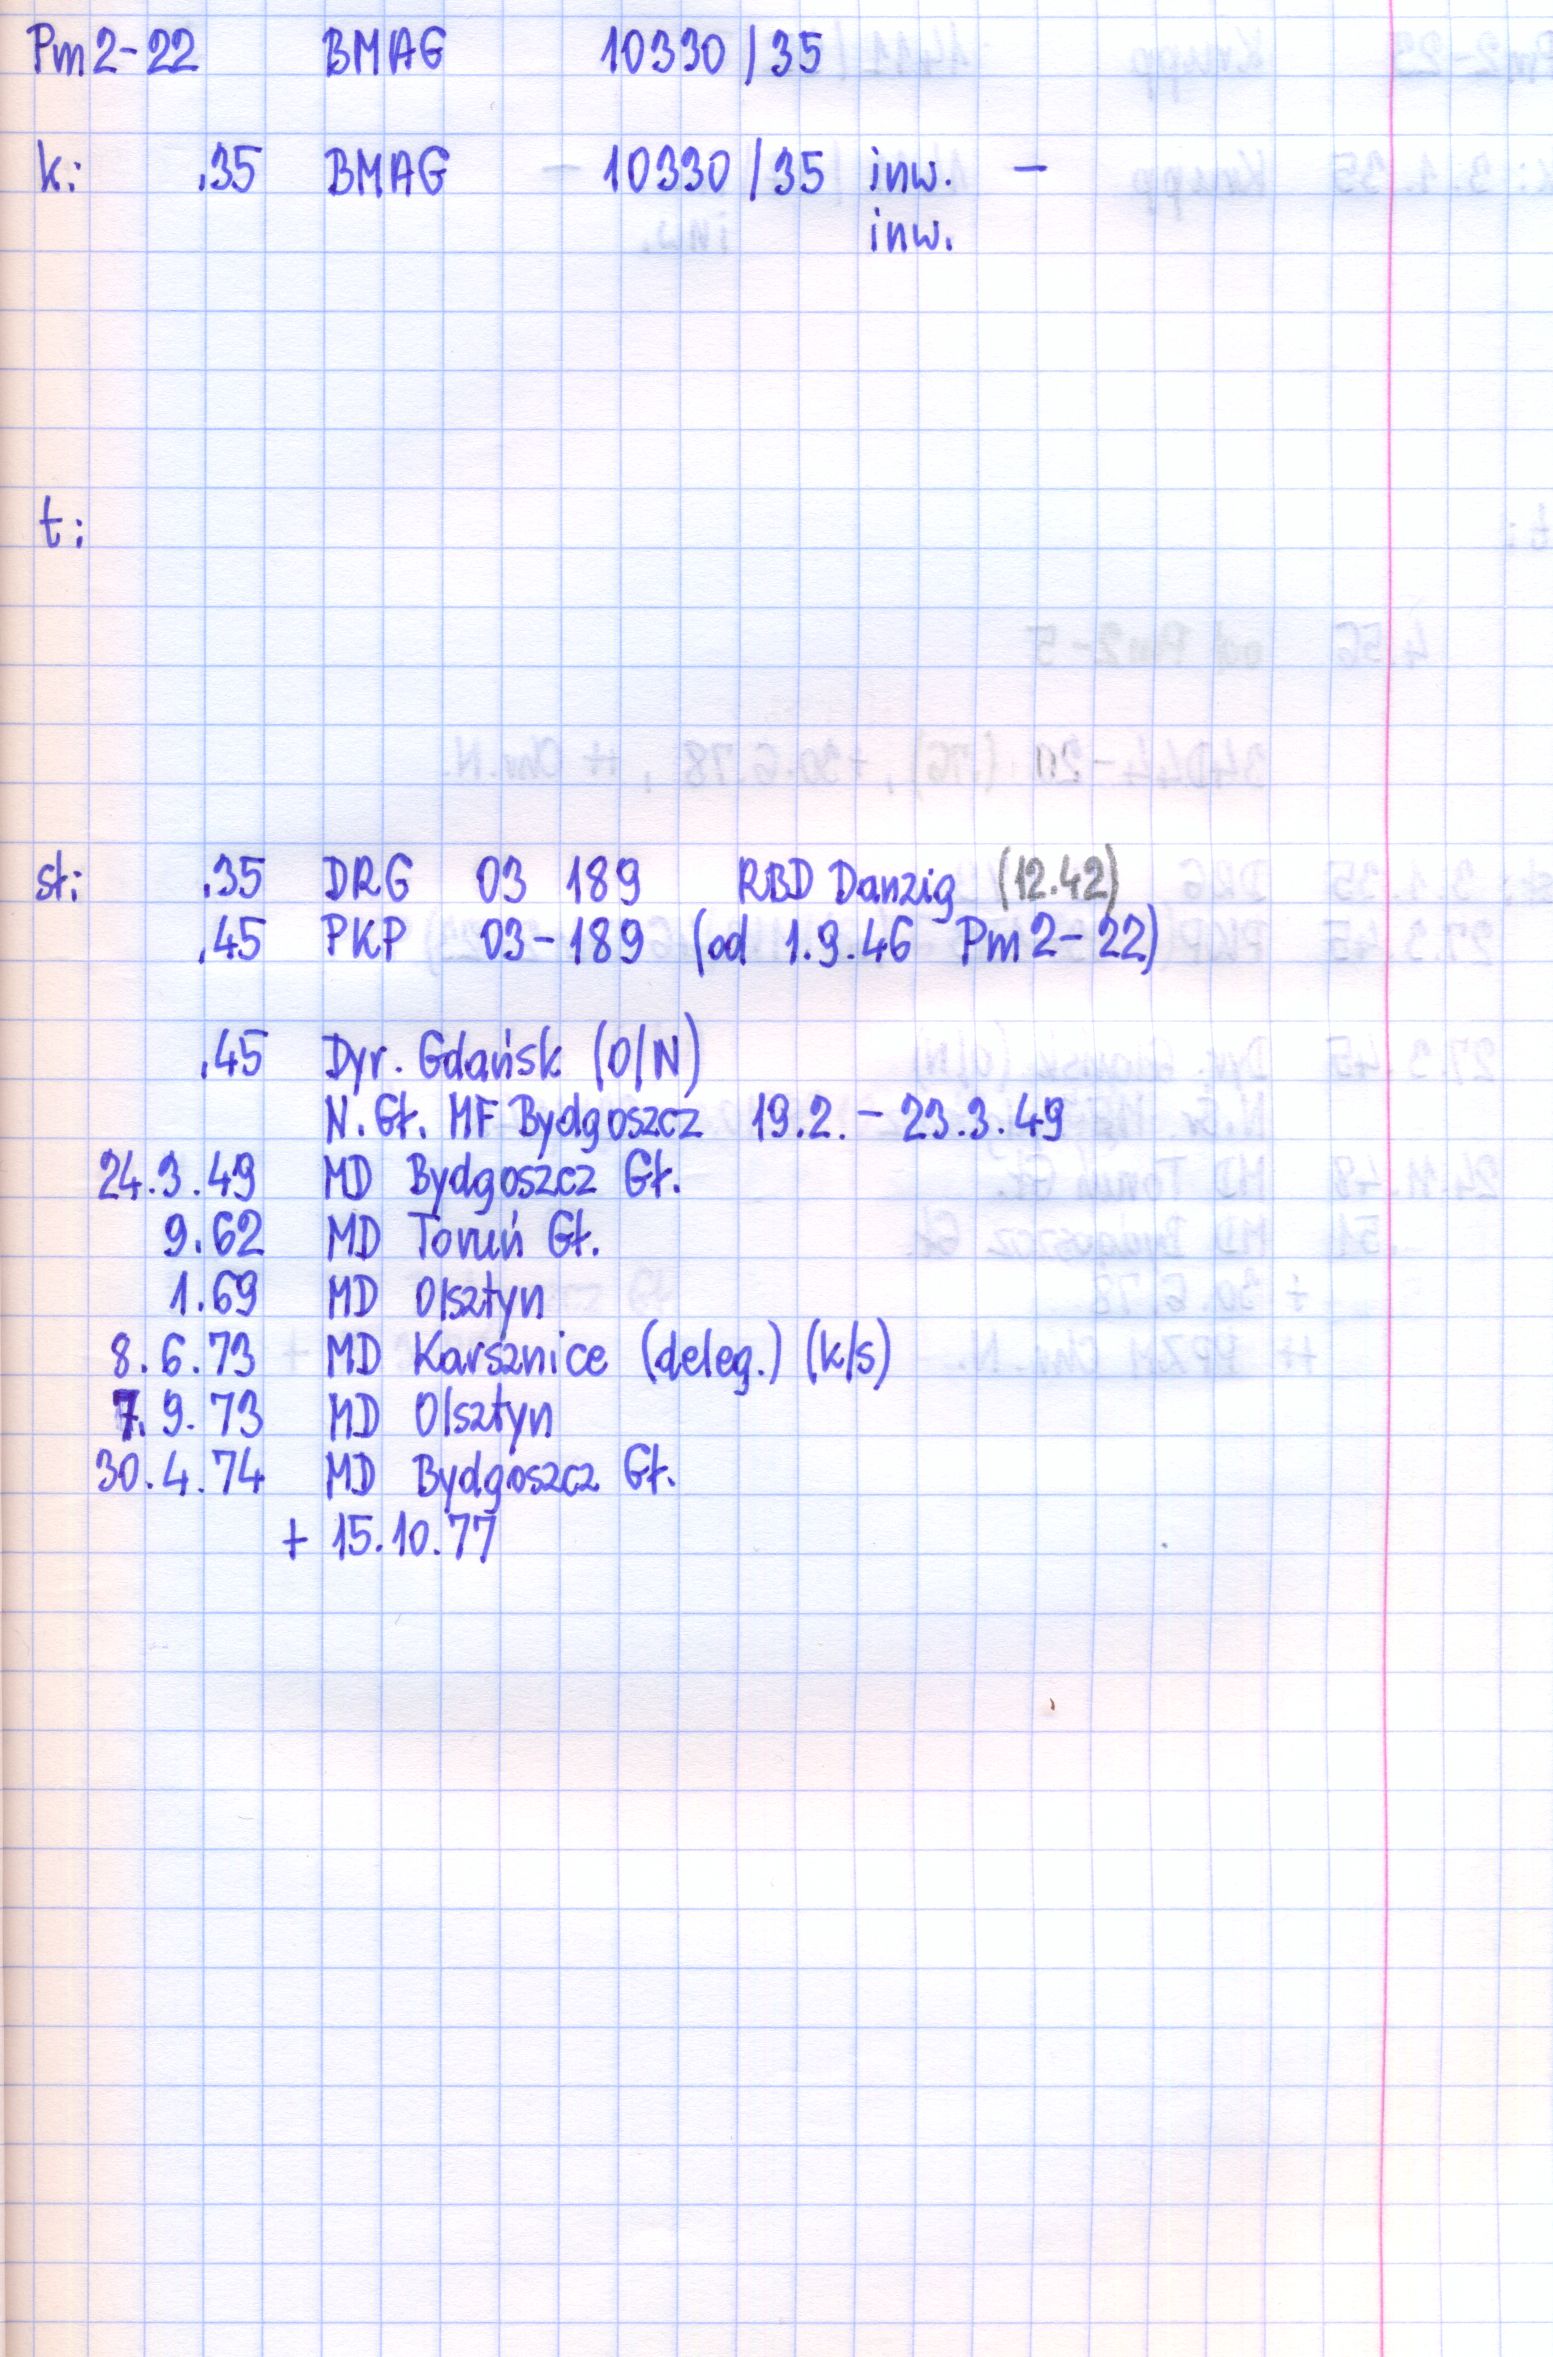 Pm2-22 BMAG 10330/35
k: .35 BMAG - 10330/35 inw. -
inw.
t:
st: .35 DRG 03 189 RBD Danzig (12.42)
.45 PKP 03-189 (od 1.9.46 Pm2-22)
.45 Dyr. Gdańsk (O/N)
N.Gł. MF Bydgoszcz 19.2. - 23.3.49
24.3.49 MD Bydgoszcz Gł.
9.62 MD Toruń Gł.
1.69 MD Olsztyn
8.6.73 MD Karsznice (deleg.) (k/s)
7.9.73 MD Olsztyn
30.4.74 MD Bydgoszcz Gł.
+ 15.10.77